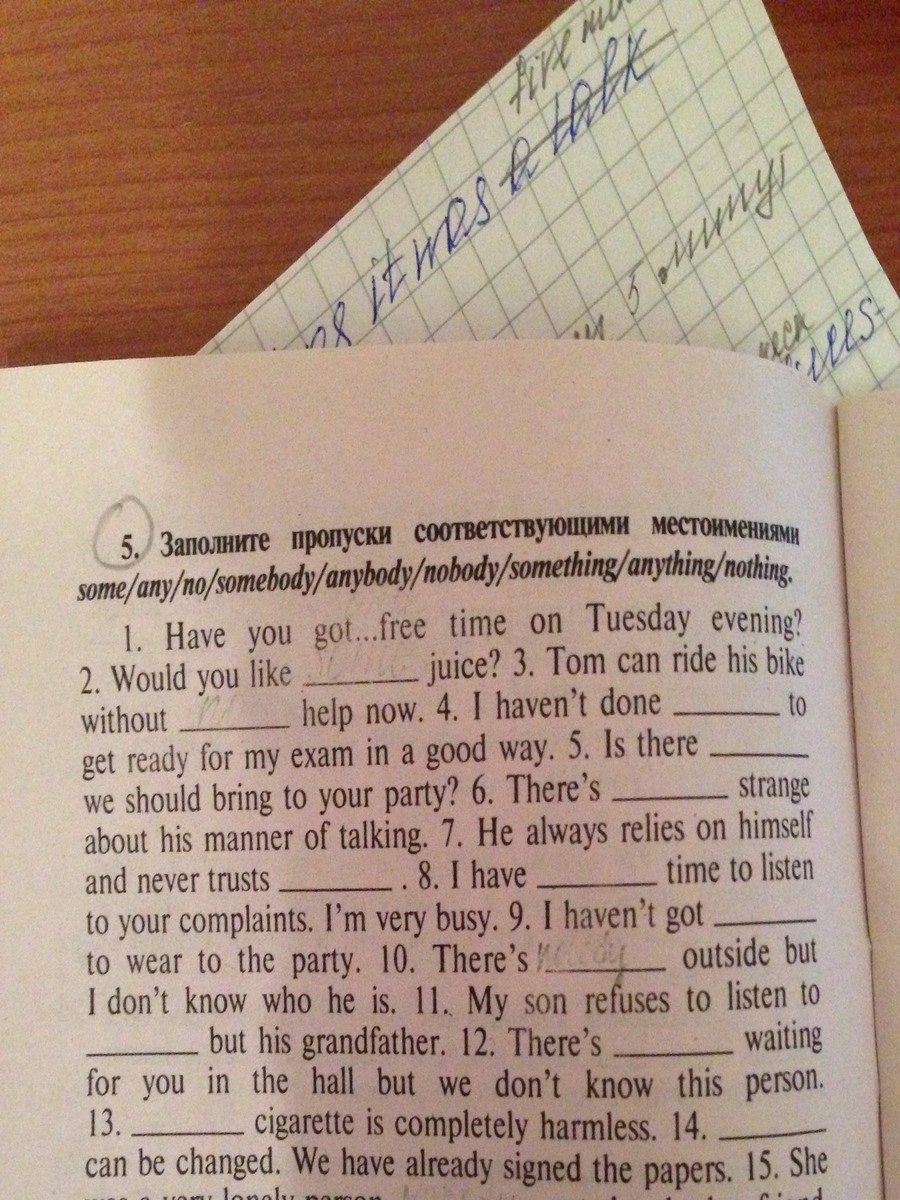 five
it was a talk
5 минут
5. Заполните пропуски соответствующими местоимениями
some/any/no/somebody/anybody/nobody/something/anything/nothing.
1. Have you got...free time on Tuesday evening?
2. Would you like some juice? 3. Tom can ride his bike
without ________ help now. 4. I haven't done ________ to
get ready for my exam in a good way. 5. Is there ________
we should bring to your party? 6. There's ________ strange
about his manner of talking. 7. He always relies on himself
and never trusts ________ . 8. I have ________ time to listen
to your complaints. I'm very busy. 9. I haven't got ________
to wear to the party. 10. There's ________ outside but
I don't know who he is. 11. My son refuses to listen to
________ but his grandfather. 12. There's ________ waiting
for you in the hall but we don't know this person.
13. ________ cigarette is completely harmless. 14. ________
can be changed. We have already signed the papers. 15. She
was a very lonely person.